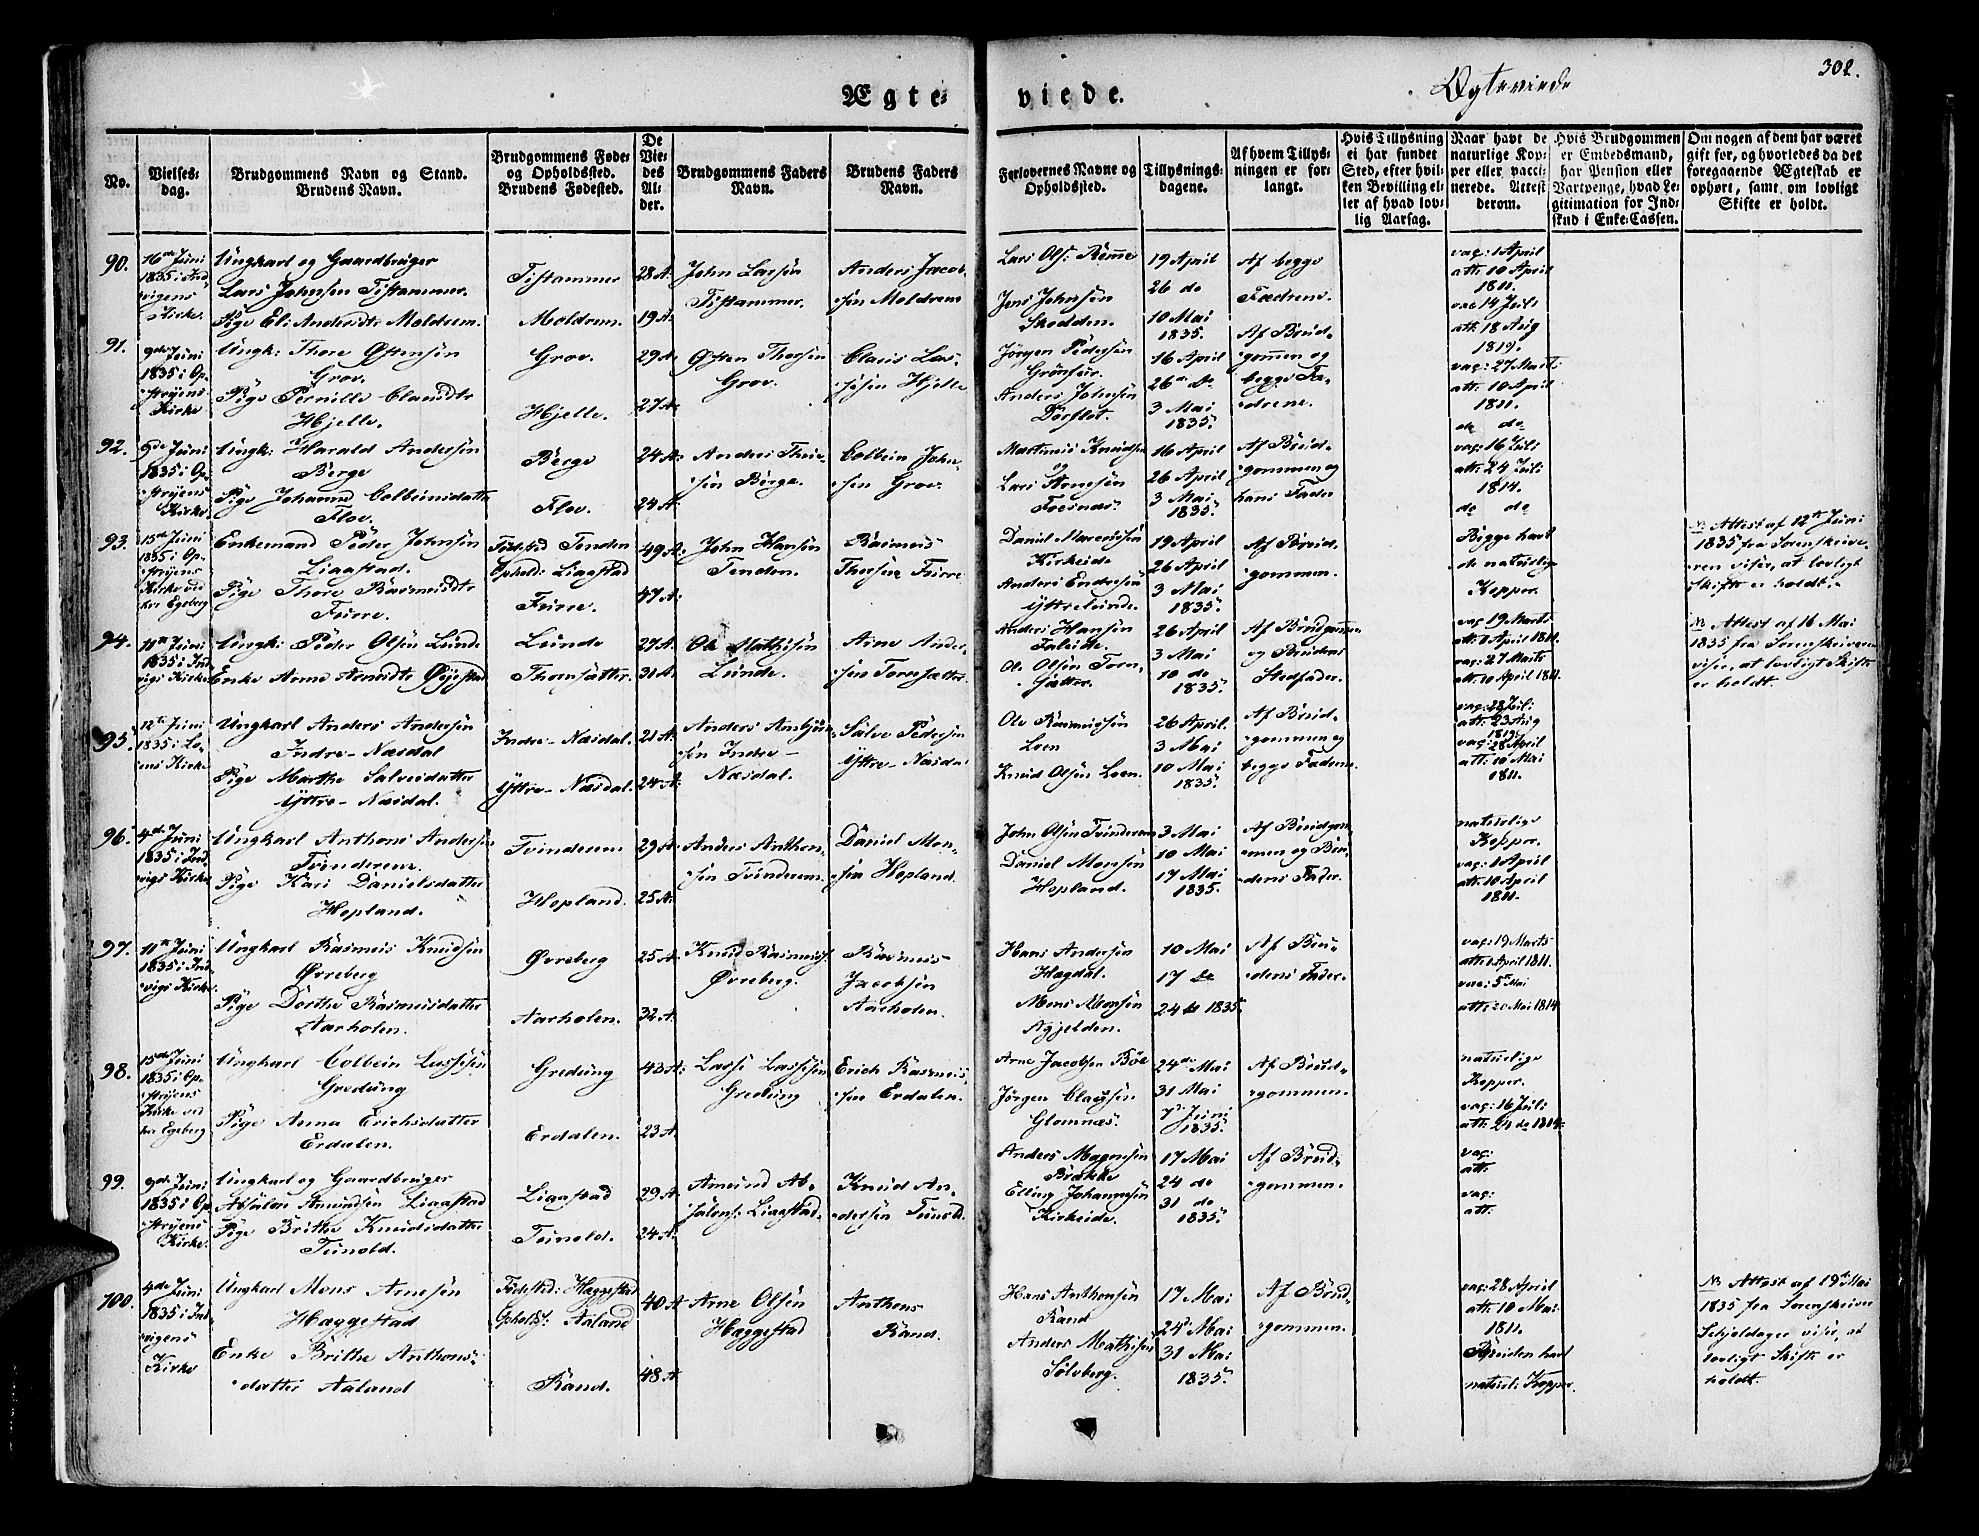 302.
Ægte-
viede.
Ægteviede
No.
Vielses-
dag.
Brudgommens Navn og Stand.
Brudens Navn.
Brudgommens Føde-
og Opholdssted.
Brudens Fødested.
De
Vie-
des
Al-
der.
Brudgommens Faders
Navn.
Brudens Faders
Navn.
Forlovernes Navne og
Opholdssted.
Tillysnings-
dagene.
Af hvem Tillys-
ningen er for-
langt.
Hvis Tillysning
ei har fundet
Sted, efter hvil-
ken Bevilling el-
ler af hvad lov-
lig Aarsag.
Naar havt de
naturlige Kop-
per eller vacci-
nerede. Attest
derom.
Hvis Brudgommen
er Embedsmand,
har Pension eller
Vartpenge, hvad Le-
gitimation for Ind-
skud i Enke-Cassen.
Om nogen af dem har været
gift før, og hvorledes da det
foregaaende Ægteskab er
ophørt, samt om lovligt
Skifte er holdt.
90.
16de Juni
1835 i Ind
vigens
Kirke.
Ungkarl og Gaardbruger
Lars Johnsen Tistammer.
Pige Eli Andersdtr Moldrem.
Tistammer
Moldrem.
28 A.
19 A.
John Larsen
Tistammer.
Anders Jacob
sen Moldrem
Lars Ols: Remme
Jens Johnsen
Skodden.
19 April
26 de
10 Mai
1835.
Af begge
Fædrene.
vac: 1 April
att: 10 April
1811.
vac 14 Juli
att: 18 Aug
1819.
91.
9de Juni
1835 i Op-
stryens
Kirke
Ungk: Thore Østensen
Grov.
Pige Pernille Clausdtr
Hjelle.
Grov.
Hjelle.
29 A.
27 A.
Østen Thorsen
Grov.
Claus Las-
sesen Hjelle
Jørgen Pedersen
Anders Johnsen
16 April
26de de
3 Mai
1835.
Af Brud-
gommen og
begge Fæ-
drene.
vac: 27 Marts
att: 10 April
1811.
do do
92.
9de Juni
1835 i Op-
stryens
Kirke.
Ungk: Harald Andersen
Berge
Pige Johanne Colbeinsdatter
Flov.
Berge
Flov.
24 A.
24 A.
Colbein John-
sen Grov
Martinus Knudsen
og
Lars Arnesen
16 April
26 April
3 Mai
1835.
Af Brud-
gommen og
hans Fader
vac: 16 Juli
att: 24 Juli
1814.
do do
93.
15de Juni
1835 i Op-
stryens
Kirke ved
Hr Egeberg
Enkemand Peder Johnsen
Liaastad.
Pige Thore Rasmusdtr
Furre.
Fødested Tenden
Ophold: Liaastad
Furre.
49 A.
47 A.
John Hansen
Tenden.
Rasmus
Thorsen Furre
Kirkeide
Anders Endresen
Yttrelunde.
19 April
26 April
3 Mai
1835.
Af Brud-
gommen.
Begge havt
de naturlige
Kopper.
NB Attest af 12te Juni
1835 fra Sorenskrive-
ren viser, at lovligt
Skifte er holdt.
94.
11te Juni
1835 i Ind
vigs Kirke
Ungk: Peder Olsen Lunde
Lunde
Thomsætter.
27 A.
31 A.
Ole Mathisen
Lunde.
Arne Ander-
Anders Hansen
Faleide.
26 April
3 Mai
10 de
1835.
Af Brudgommen
og Brudens
Stedfader.
vac: 19 Marts
att: 1 April 1811.
vac: 27 Marts
att: 10 April 1811.
NB Attest af 16 Mai
1835 fra Sorenskriveren
viser, at lovligt Skifte
er holdt.
95.
12te Juni
1835 i Lo-
ens Kirke
Ungkarl Anders Andersen
Indre-Næsdal
Pige Marthe Salvesdatter
Yttre-Næsdal.
Indre-Næsdal.
Yttre-Næsdal.
21 A.
24 A.
sen Indre-
Næsdal.
Salve Pedersen
Yttre-Næsdal
Ole Rasmussen
Loen
Knud Olsen Loen.
26 April.
3 Mai
10 Mai
1835.
Af Brud-
gommen og
begge Fædrene.
vac: 28 Juli
att: 23 Aug
1819.
vac: 28 April
att: 10 Mai
1811.
96.
4de Juni
1835 i Ind
vigs Kirke
Ungkarl Anthons Andersen
Tvinderem.
Pige Kari Danielsdatter
Hopland.
Tvinderem
Hopland.
29 A.
25 A.
Anders Anthon-
sen Tvinderem.
Daniel Mon-
sen Hopland.
John Olsen Tvinderem
Daniel Monsen
Hopland.
3 Mai
10 Mai
17 Mai
1835.
Af Brudgom-
men og Bru-
dens Fader.
naturlige
Kopper.
vac: 1 April
att: 10 April
1811.
97.
11te Juni
1835 i Ind
vigs Kirke.
Ungkarl Rasmus Knudsen
Øvreberg
Pige Dorthe Rasmusdatter
Aarholen.
Øvreberg
Aarholen.
25 A.
32 A.
Knud Rasmuss.
Øvreberg.
Rasmus
Jacobsen
Aarholen.
Hans Andersen
Hagdal.
Mons Monsen
10 Mai
17 de
24 de 1835.
Af Bru-
dens Fader.
vac: 19 Marts
att: 1 April 1811.
vac: 5te Mai
att: 20 Mai 1814
98.
15de Juni
1835 i Op-
stryens
Kirke ved
Hr Egeberg
Ungkarl Colbein Lassesen
Gredung
Pige Anna Erichsdatter
Erdalen.
Gredung
Erdalen.
43 A.
23 A.
Lasse Lassesen
Gredung
Erich Rasmus-
sen Erdalen.
Arne Jacobsen Bøe
Jørgen Claussen
Glomnæs.
24de Mai
31 Mai
7de Juni
1835.
Af Brud-
gommen.
naturlige
Kopper.
vac: 16 Juli
att: 24 de 1814.
99.
9de Juni
1835 i Op
stryens
Kirke.
Ungkarl og Gaardbruger
Absalon Amundsen Liaastad
Pige Brithe Knudsdatter
Tunold.
Liaastad
Tunold.
29 A.
24 A.
Amund Ab-
salons: Liaastad.
Knud An-
dersen Tunold.
Anders Magnesen
Brække
Elling Johannesen
Kirkeide.
17 Mai
24 de
31 de
1835.
Af Brud-
gommen.
vac:
att:
vac:
att:
100.
4de Juni
1835 i Ind
vigens
Kirke
Ungkarl Mons Arnesen
Haggestad
Enke Brithe Anthons-
datter Aaland
Fødested: Haggestad
Opholdst: Aaland
Rand.
40 A
48 A.
Arne Olsen
Haggestad
Anthons
Rand.
Hans Anthonsen
Rand
Anders Mathisen
Sølvberg.
17 Mai
24de Mai
31 Mai
1835.
Af Brud-
gommen.
vac: 28 April
att: 10 Mai
1811.
Bruden havt
naturl: Kopper.
NB Attest af 19de Mai
1835 fra Sorenskriver
Schjeldager viser, at
lovligt Skifte er
holdt.